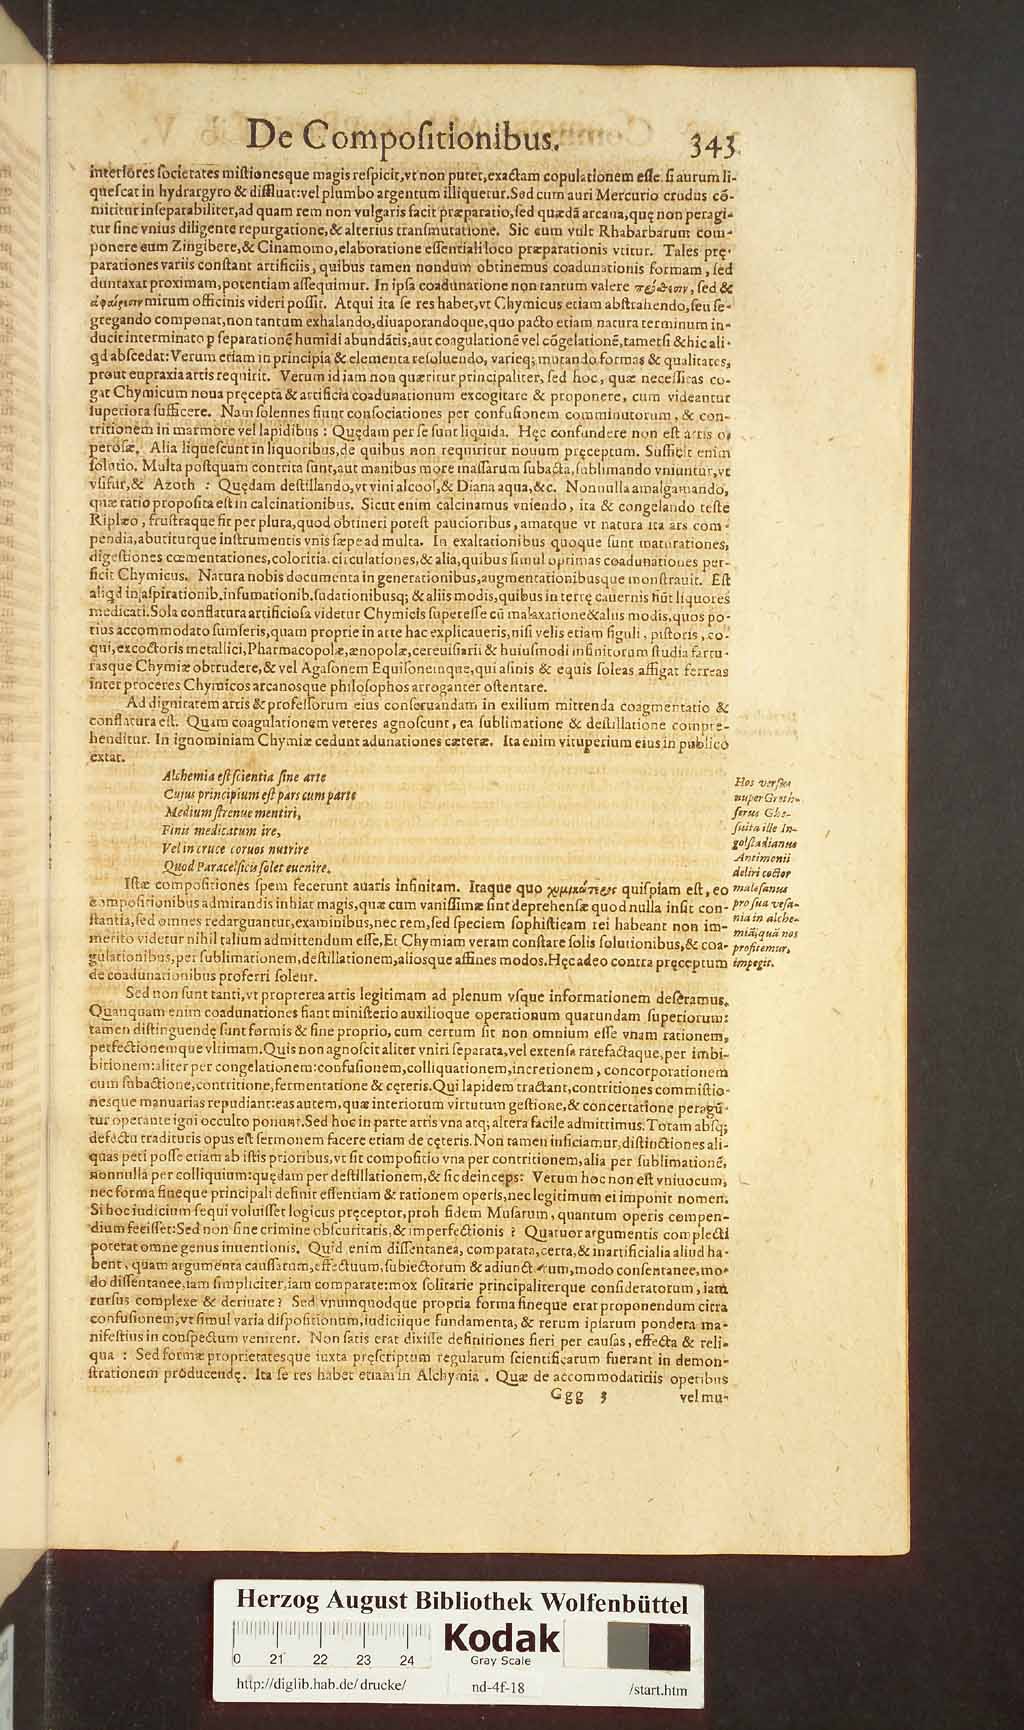 De Compoſitionibus. 343
interiores ſocietates miſtionesque magis reſpicit, vt non putet, exactam copulationem eſſe ſi aurum li-
queſcat in hydrargyro & diffluat: vel plumbo argentum illiquetur. Sed cum auri Mercurio crudus cõ-
mititur inſeparabiliter, ad quam rem non vulgaris facit præparatio, ſed quædã arcana, quę non peragi-
tur ſine vnius diligente repurgatione, & alterius tranſmutatione. Sic cum vult Rhabarbarum com-
ponere cum Zingibere, & Cinamomo, elaboratione eſſentiali loco præparationis vtitur. Tales prę-
parationes variis conſtant artificiis, quibus tamen nondum obtinemus coadunationis formam, ſed
duntaxat proximam, potentiam aſſequimur. In ipſa coadunatione non tantum valere πρόσθεσιν, ſed &
ἀφαίρεσιν mirum officinis videri poſſit. Atqui ita ſe res habet, vt Chymicus etiam abſtrahendo, ſeu ſe-
gregando componat, non tantum exhalando, diuaporandoque, quo pacto etiam natura terminum in-
ducit interminato p ſeparationẽ humidi abundãtis, aut coagulationẽ vel cõgelationẽ, tametſi & hic ali-
qd abſcedat: Verum etiam in principia & elementa reſoluendo, varieq; mutando formas & qualitates,
prout eupraxia artis requirit. Verum id iam non quæritur principaliter, ſed hoc, quæ neceſſitas co-
gat Chymicum noua pręcepta & artificia coadunationum excogitare & proponere, cum videantur
ſuperiora ſufficere. Nam ſolennes fiunt conſociationes per confuſionem comminutorum, & con-
tritionem in marmore vel lapidibus: Quędam per ſe ſunt liquida. Hęc confundere non eſt artis o-
peroſæ. Alia liqueſcunt in liquoribus, de quibus non requiritur nouum pręceptum. Sufficit enim
ſolutio. Multa poſtquam contrita ſunt, aut manibus more maſſarum ſubacta, ſublimando vniuntur, vt
vſifur, & Azoth: Quędam deſtillando, vt vini alcool, & Diana aqua, &c. Nonnulla amalgamando,
quæ ratio propoſita eſt in calcinationibus. Sicut enim calcinamus vniendo, ita & congelando teſte
Riplæo, fruſtraque fit per plura, quod obtineri poteſt paucioribus, amatque vt natura ita ars com-
pendia, abutiturque inſtrumentis vnis ſæpe ad multa. In exaltationibus quoque ſunt maturationes,
digeſtiones cœmentationes, coloritia. circulationes, & alia, quibus ſimul oprimas coadunationes per-
ficit Chymicus. Natura nobis documenta in generationibus, augmentationibusque monſtrauit. Eſt
aliqd in aſpirationib. inſumationib. ſudationibusq; & aliis modis, quibus in terrę cauernis fiũt liquores
medicati. Sola conflatura artificioſa videtur Chymicis ſupereſſe cũ malaxatione & aliis modis, quos po-
tius accommodato ſumſeris, quam proprie in arte hac explicaueris, niſi velis etiam figuli, piſtoris, co-
qui, excoctoris metallici, Pharmacopolæ, ænopolæ, cereuiſiarii & huiuſmodi infinitorum ſtudia fartu-
rasque Chymiæ obtrudere, & vel Agaſonem Equiſonemque, qui aſinis & equis ſoleas affigat ferreas
inter proceres Chymicos arcanosque philoſophos arroganter oſtentare.
Ad dignitatem artis & profeſſorum eius conſeruandam in exilium mittenda coagmentatio &
conflatura eſt. Quam coagulationem veteres agnoſcunt, ea ſublimatione & deſtillatione compre-
henditur. In ignominiam Chymiæ cedunt adunationes cæteræ. Ita enim vituperium eius in publico
extat.
Alchemia eſt ſcientia ſine arte
Cujus principium eſt pars cum parte
Medium ſtrenue mentiri,
Finis medicatum ire,
Vel in cruce coruos nutrire
Quod Paracelſicis ſolet euenire.
Hos verſus
nuper Greth-
ſerus Gho-
ſuita ille In-
golſtadianus
Antimonii
deliri coctor
maleſanus
pro ſua veſa-
nia in alche-
miã, quã nos
profitemur,
impegit.
Iſtæ compoſitiones ſpem fecerunt auaris infinitam. Itaque quo χυμικώτερος quiſpiam eſt, eo
compoſitionibus admirandis inhiat magis, quæ cum vaniſſimæ ſint deprehenſæ quod nulla inſit con-
ſtantia, ſed omnes redarguantur, examinibus, nec rem, ſed ſpeciem ſophiſticam rei habeant non im-
merito videtur nihil talium admittendum eſſe, Et Chymiam veram conſtare ſolis ſolutionibus, & coa-
gulationibus, per ſublimationem, deſtillationem, aliosque affines modos. Hęc adeo contra pręceptum
de coadunationibus proferri ſolent.
Sed non ſunt tanti, vt propterea artis legitimam ad plenum vſque informationem deſeramus.
Quanquam enim coadunationes fiant miniſterio auxilioque operationum quarundam ſuperiorum:
tamen diſtinguendę ſunt formis & fine proprio, cum certum ſit non omnium eſſe vnam rationem,
perfectionemque vltimam. Quis non agnoſcit aliter vniri ſeparata, vel extenſa rarefactaque, per imbi-
bitionem: aliter per congelationem: confuſionem, colliquationem, incretionem, concorporationem
cum ſubactione, contritione, fermentatione & cęteris. Qui lapidem tractant, contritiones commiſtio-
nesque manuarias repudiant: eas autem, quæ interiorum virtutum geſtione, & concertatione peragũ-
tur operante igni occulto ponunt. Sed hoc in parte artis vna atq; altera facile admittimus. Totam absq;
defectu tradituris opus eſt ſermonem facere etiam de cęteris. Non tamen inficiamur, diſtinctiones ali-
quas peti poſſe etiam ab iſtis prioribus, vt ſit compoſitio vna per contritionem, alia per ſublimationẽ,
nonnulla per colliquium: quędam per deſtillationem, & ſic deinceps: Verum hoc non eſt vniuocum,
nec forma fineque principali definit eſſentiam & rationem operis, nec legitimum ei imponit nomen.
Si hoc iudicium ſequi voluiſſet logicus pręceptor, proh fidem Muſarum, quantum operis compen-
dium feciſſet: Sed non ſine crimine obſcuritatis, & imperfectionis? Quatuor argumentis complecti
poterat omne genus inuentionis. Quid enim diſſentanea, comparata, certa, & inartificialia aliud ha-
bent, quam argumenta cauſſarum, effectuum, ſubiectorum & adiunctorum, modo conſentanee, mo-
do diſſentanee, iam ſimpliciter, iam comparate: mox ſolitarie principaliterque conſideratorum, iam
rurſus complexe & deriuate? Sed vnumquodque propria forma fineque erat proponendum citra
confuſionem, vt ſimul varia diſpoſitionum, iudiciique fundamenta, & rerum ipſarum pondera ma-
nifeſtius in conſpectum venirent. Non ſatis erat dixiſſe definitiones fieri per cauſas, effecta & reli-
qua: Sed formæ proprietatesque iuxta pręſcriptum regularum ſcientificarum fuerant in demon-
ſtrationem producendę. Ita ſe res habet etiam in Alchymia. Quæ de accommodatitiis operibus
Ggg 3 vel mu-
Herzog August Bibliothek Wolfenbüttel
0 21 22 23 24
Kodak
Gray Scale
http://diglib.hab.de/drucke/ nd-4f-18 /start.htm